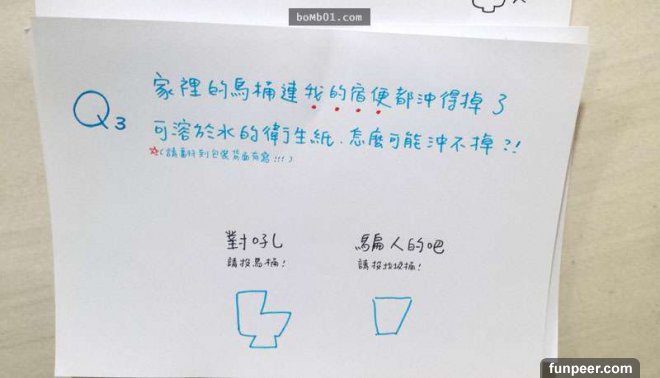 boMb01.com
Q3
家裡的馬桶連我的宿便都沖得掉了
可溶於水的衛生紙、怎麼可能沖不掉?!
☆(請看仔到包裝背面有寫!!!)
對吼乚
請投馬桶!
騙人的吧
請投垃圾桶!
funpeer.com